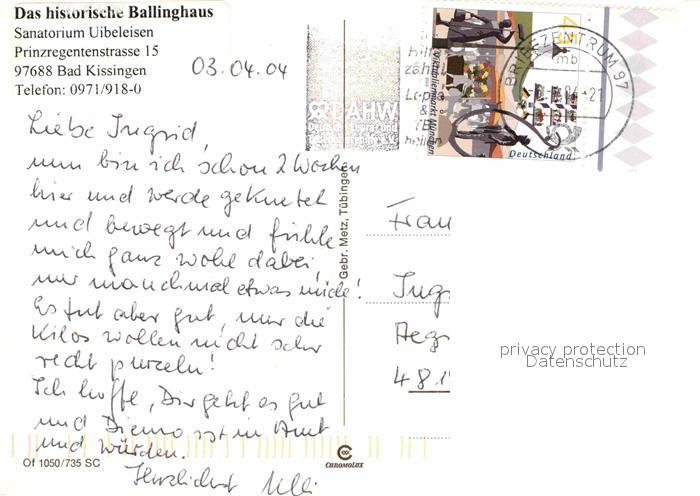 Das historische Ballinghaus
Sanatorium Uibeleisen
Prinzregentenstrasse 15
97688 Bad Kissingen
Telefon: 0971/918-0
03.04.04
Liebe Ingrid,
nun bin ich schon 2 Wochen
hier und werde geknetet
und bewegt und fühle
mich ganz wohl dabei,
nur manchmal etwas müde!
Es tut aber gut, nur die
Kilos wollen nicht sehr
recht purzeln!
Ich hoffe, Dir geht es gut
und Diemo ist in Amt
und Würden.
Herzlichst Ulli
Of 1050/735 SC
Gebr. Metz, Tübingen
CHROMOLUX
DAHW
Deutsche Lepra- und
BRIEFZENTRUM 97
mb
Viktualienmarkt München
Deutschland
Frau
Ingr
Aegi
481
privacy protection
Datenschutz